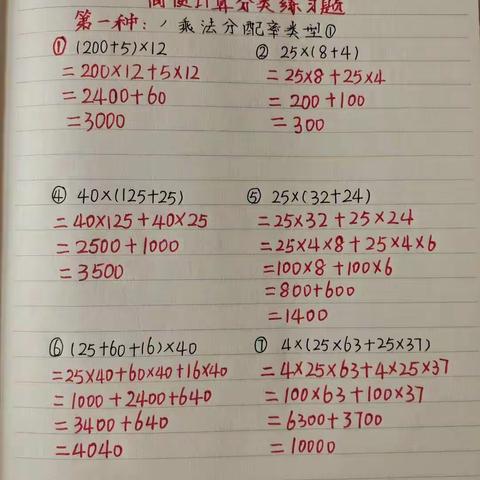 简便计算分类练习题
第一种：乘法分配率类型①
① (200+5)×12
=200×12+5×12
=2400+60
=3000
② 25×(8+4)
=25×8+25×4
=200+100
=300
④ 40×(125+25)
=40×125+40×25
=2500+1000
=3500
⑤ 25×(32+24)
=25×32+25×24
=25×4×8+25×4×6
=100×8+100×6
=800+600
=1400
⑥ (25+60+16)×40
=25×40+60×40+16×40
=1000+2400+640
=3400+640
=4040
⑦ 4×(25×63+25×37)
=4×25×63+4×25×37
=100×63+100×37
=6300+3700
=10000